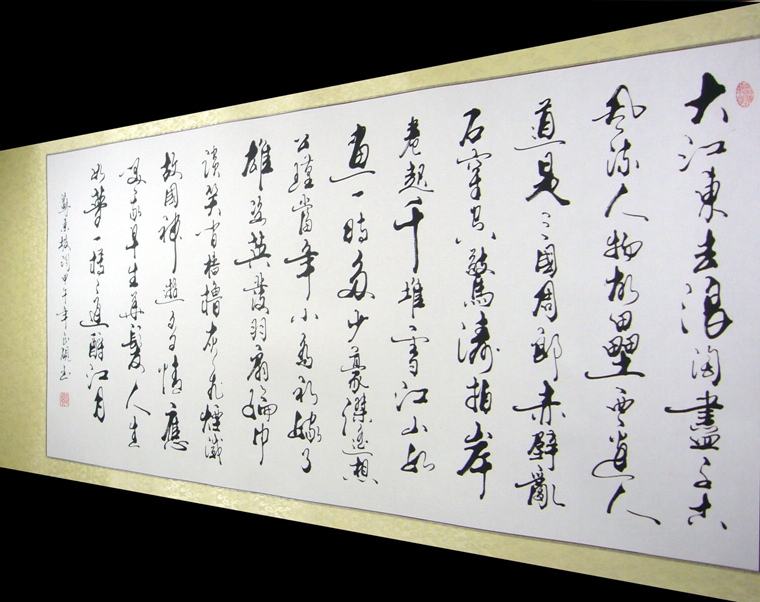 大江東去浪淘盡千古
風流人物故壘西邊人
道是三國周郎赤壁亂
石穿空驚濤拍岸
卷起千堆雪江山如
畫一時多少豪傑遙想
公瑾當年小喬初嫁了
雄姿英發羽扇綸巾
談笑間檣櫓灰飛煙滅
故國神遊多情應
笑我早生華髮人生
如夢一樽還酹江月
蘇東坡詞甲午年書